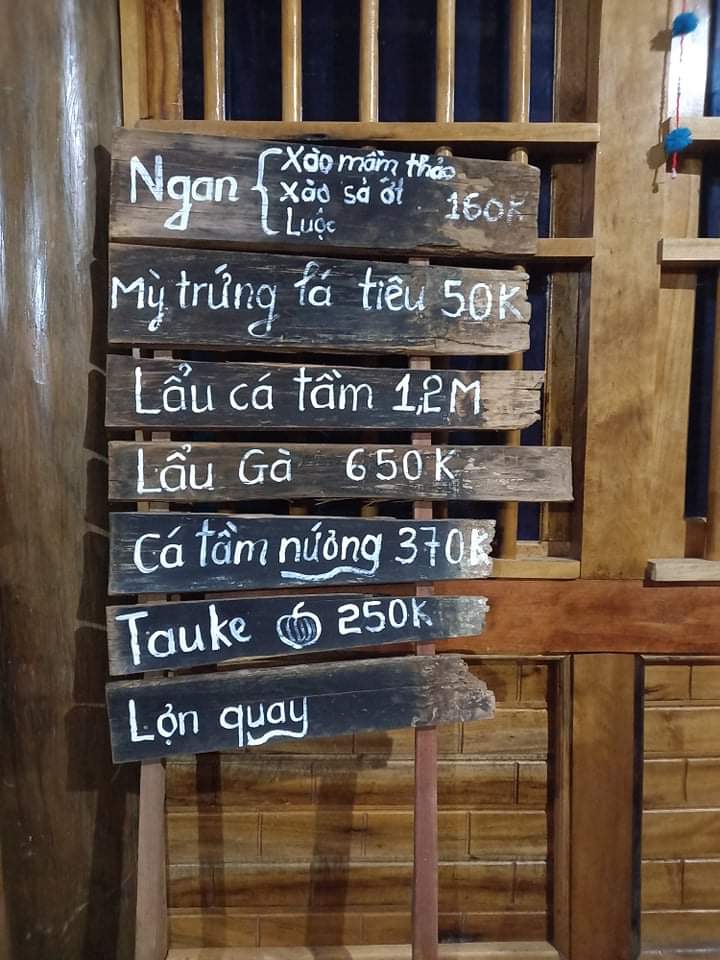 Ngan { Xào mầm thảo
Xào sả ớt 160K
Luộc
Mỳ trứng lá tiêu 50K
Lẩu cá tầm 1,2M
Lẩu Gà 650K
Cá tầm nướng 370K
Tauke 250K
Lợn quay